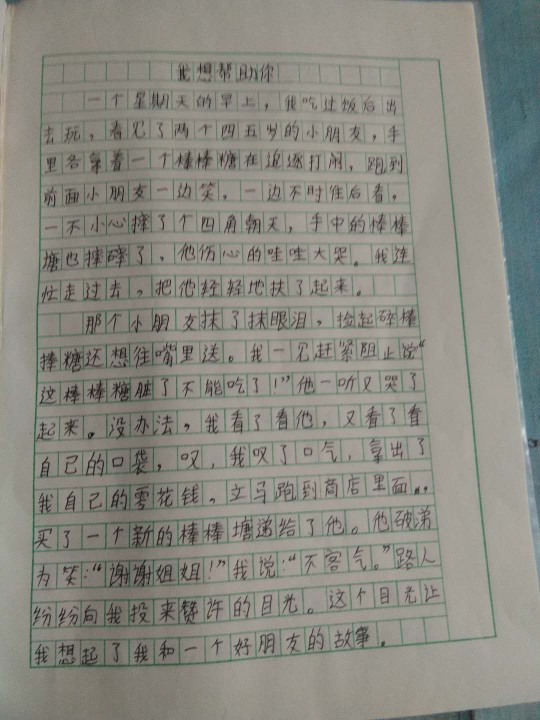 我想帮助你
一个星期天的早上，我吃过饭后出
去玩，看见了两个四五岁的小朋友，手
里各拿着一个棒棒糖在追逐打闹，跑到
前面小朋友一边笑，一边不时往后看，
一不小心摔了个四角朝天，手中的棒棒
塘也摔碎了，他伤心的哇哇大哭。我连
忙走过去，把他轻轻地扶了起来。
那个小朋友抹了抹眼泪，捡起碎棒
棒糖还想往嘴里送。我一见赶紧阻止说“
这棒棒糖脏了不能吃了！”他一听又哭了
起来。没办法，我看了看他，又看了看
自己的口袋，叹，我叹了口气，拿出了
我自己的零花钱，立马跑到商店里面，
买了一个新的棒棒塘递给了他。他破涕
为笑：“谢谢姐姐！”我说：“不客气。”路人
纷纷向我投来赞许的目光。这个目光让
我想起了我和一个好朋友的故事。